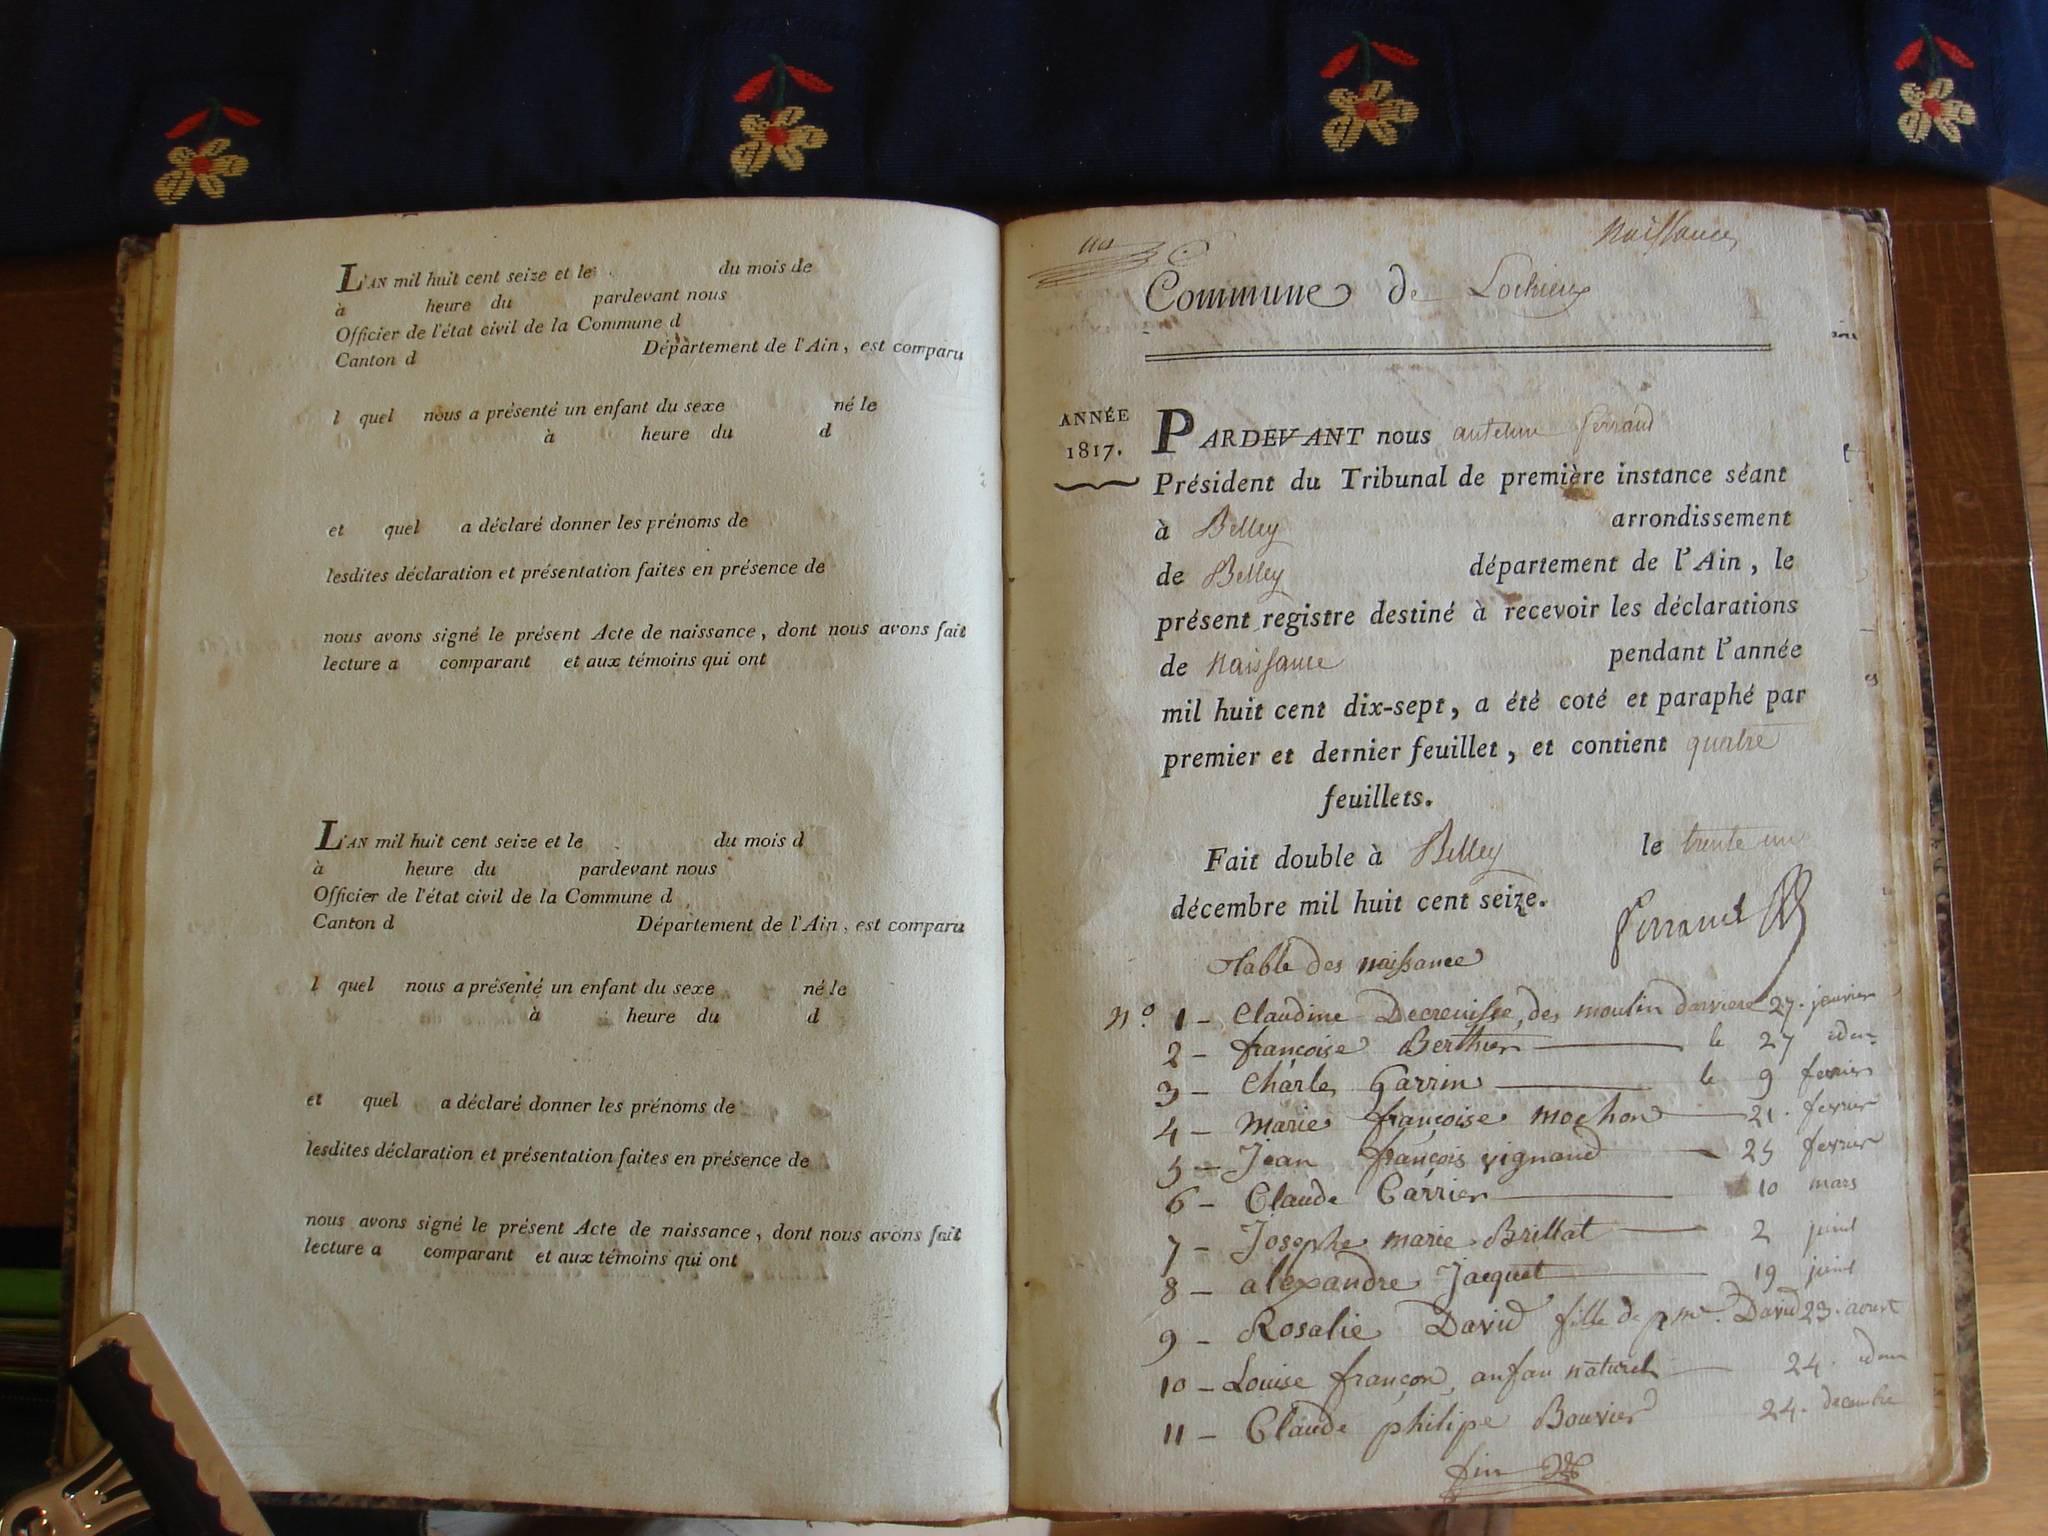 L'AN mil huit cent seize et le du mois de
à heure du pardevant nous
Officier de l'état civil de la Commune d
Canton d Département de l'Ain, est comparu
l quel nous a présenté un enfant du sexe né le
à heure du d
et quel a déclaré donner les prénoms de
lesdites déclaration et présentation faites en présence de
nous avons signé le présent Acte de naissance, dont nous avons fait
lecture a comparant et aux témoins qui ont
L'AN mil huit cent seize et le du mois d
à heure du pardevant nous
Officier de l'état civil de la Commune d
Canton d Département de l'Ain, est comparu
l quel nous a présenté un enfant du sexe né le
à heure du d
et quel a déclaré donner les prénoms de
lesdites déclaration et présentation faites en présence de
nous avons signé le présent Acte de naissance, dont nous avons fait
lecture a comparant et aux témoins qui ont
Naissances
Commune de Lochieux
ANNÉE
1817.
PARDEVANT nous antelme ferrand
Président du Tribunal de première instance séant
à Belley arrondissement
de Belley département de l'Ain, le
présent registre destiné à recevoir les déclarations
de Naissance pendant l'année
mil huit cent dix-sept, a été coté et paraphé par
premier et dernier feuillet, et contient quatre
feuillets.
Fait double à Belley le trente un
décembre mil huit cent seize.
ferrand
Table des naissance
N.º 1 - Claudine Decrenisse, des moulin darviere 27. janvier
2 - françoise Berthier le 27 idem
3 - Charle Garrin le 9 fevrier
4 - Marie françoise mochon 21. fevrier
5 - Jean françois vignand 25 fevrier
6 - Claude Carrier 10 mars
7 - Josephe marie Brillat 2 juin
8 - alexandre Jacquet 19 juin
9 - Rosalie David fille de David 23. aoust
10 - Louise françon, anfan naturel 24. idem
11 - Claude philipe Bouvier 24. decembre
fin